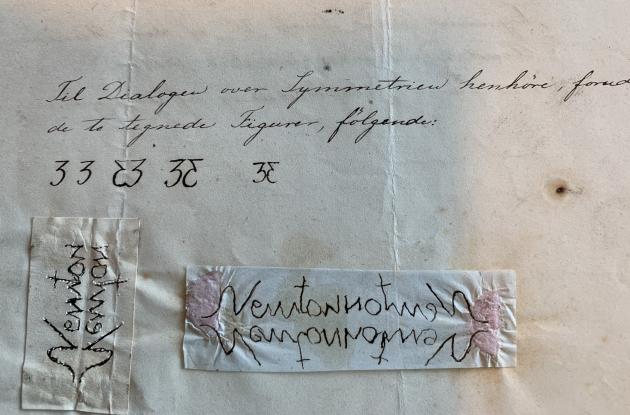 Til Dialogen over Symmetrien henhöre, forud
de to tegnede Figurer, følgende:
3 3 Ɛ3 3Ɛ 3Ɛ
Newton
Newton
Newton